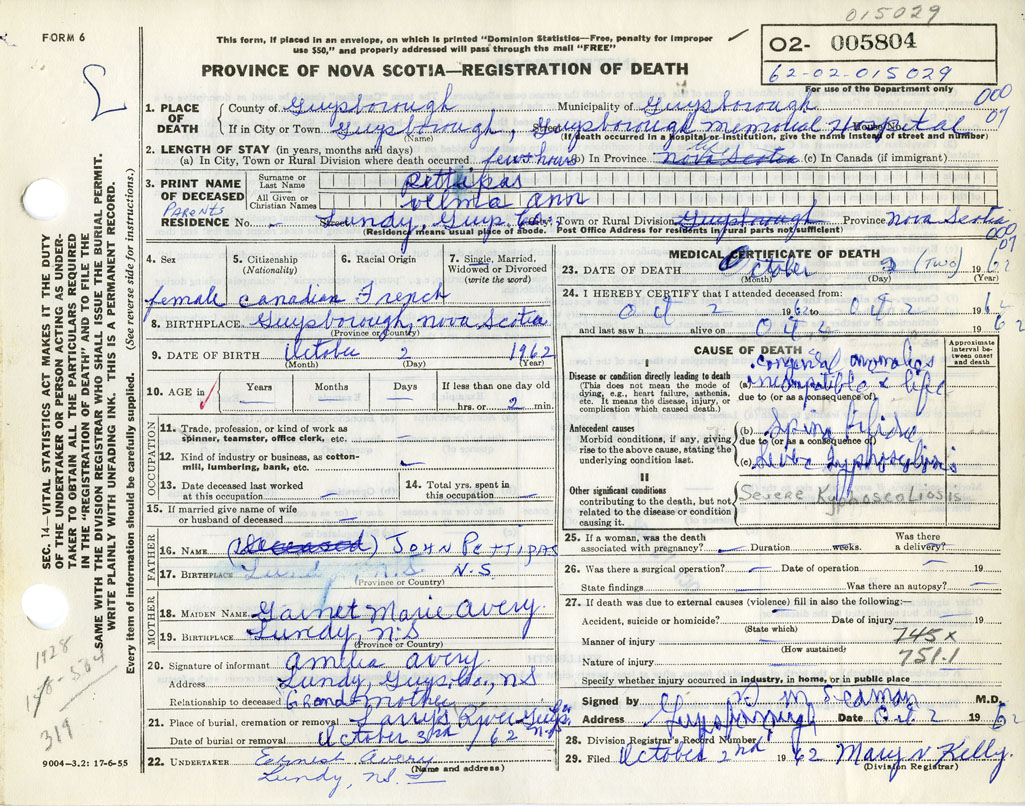 015029
FORM 6
This form, if placed in an envelope, on which is printed "Dominion Statistics—Free, penalty for improper
use $50," and properly addressed will pass through the mail "FREE"
O2- 005804
62-02-015029
For use of the Department only
PROVINCE OF NOVA SCOTIA—REGISTRATION OF DEATH
000
07
1. PLACE OF DEATH County of Guysborough Municipality of Guysborough
If in City or Town Guysborough, Street Guysborough Memorial Hospital House No.
(Name) (If death occurred in a hospital or institution, give the name instead of street and number)
2. LENGTH OF STAY (in years, months and days)
(a) In City, Town or Rural Division where death occurred few hours (b) In Province Nova Scotia (c) In Canada (if immigrant)
3. PRINT NAME OF DECEASED Surname or Last Name Pettipas
All Given or Christian Names Velma Ann
PARENTS
RESIDENCE No. - Street Lundy, Guys. Co., Town or Rural Division Guysborough Province Nova Scotia
(Residence means usual place of abode. Post Office Address for residents in rural parts not sufficient)
000
07
4. Sex 5. Citizenship (Nationality) 6. Racial Origin 7. Single, Married, Widowed or Divorced (write the word)
female Canadian French
8. BIRTHPLACE Guysborough, Nova Scotia
(Province or Country)
9. DATE OF BIRTH October 2 1962
(Month) (Day) (Year)
10. AGE in Years Months Days If less than one day old
— — — hrs. or 2 min.
OCCUPATION
11. Trade, profession, or kind of work as spinner, teamster, office clerk, etc. —
12. Kind of industry or business, as cotton-mill, lumbering, bank, etc. —
13. Date deceased last worked at this occupation — 14. Total yrs. spent in this occupation —
15. If married give name of wife or husband of deceased —
FATHER
16. NAME (Deceased) JOHN PETTIPAS
17. Birthplace Lundy N.S. N.S.
(Province or Country)
MOTHER
18. MAIDEN NAME Garnet Marie Avery
19. BIRTHPLACE Lundy, N.S
(Province or Country)
20. Signature of informant Amelia Avery
Address Lundy, Guys. Co., NS
Relationship to deceased Grandmother
21. Place of burial, cremation or removal Larry's River Guys Co
Date of burial or removal October 3rd / 62 N.S.
22. UNDERTAKER Ernest Avery
(Name and address)
Lundy, NS.
MEDICAL CERTIFICATE OF DEATH
23. DATE OF DEATH October 2 (TWO) 1962
(Month) (Day) (Year)
24. I HEREBY CERTIFY that I attended deceased from:
Oct 2 1962 to Oct 2 1962
and last saw h alive on Oct 2 1962
CAUSE OF DEATH
Approximate interval between onset and death
I
Disease or condition directly leading to death
(This does not mean the mode of dying, e.g., heart failure, asthenia, etc. It means the disease, injury, or complication which caused death.)
(a) congenital anomalies
incompatible c life
due to (or as a consequence of)
Antecedent causes
Morbid conditions, if any, giving rise to the above cause, stating the underlying condition last.
(b) Spina Bifida
due to (or as a consequence of)
(c) Severe Kyphoscoliosis
II
Other significant conditions
contributing to the death, but not related to the disease or condition causing it.
Severe Kyphoscoliosis
25. If a woman, was the death associated with pregnancy? — Duration — weeks. Was there a delivery? —
26. Was there a surgical operation? — Date of operation — 19
State findings Was there an autopsy? —
27. If death was due to external causes (violence) fill in also the following:—
Accident, suicide or homicide? — Date of injury — 19
(State which)
Manner of injury — 745x
(How sustained)
Nature of injury — 751.1
Specify whether injury occurred in industry, in home, or in public place
Signed by D M Seaman M.D.
Address Guysborough Date Oct 2 1962
28. Division Registrar's Record Number
29. Filed October 2nd 1962 Mary N Kelly.
(Division Registrar)
SEC. 14—VITAL STATISTICS ACT MAKES IT THE DUTY
OF THE UNDERTAKER OR PERSON ACTING AS UNDER-
TAKER TO OBTAIN ALL THE PARTICULARS REQUIRED
IN THE "REGISTRATION OF DEATH" AND TO FILE THE
SAME WITH THE DIVISION REGISTRAR WHO SHALL ISSUE THE BURIAL PERMIT.
WRITE PLAINLY WITH UNFADING INK. THIS IS A PERMANENT RECORD.
Every item of information should be carefully supplied. (See reverse side for instructions.)
1928
319
9004-3.2: 17-6-55